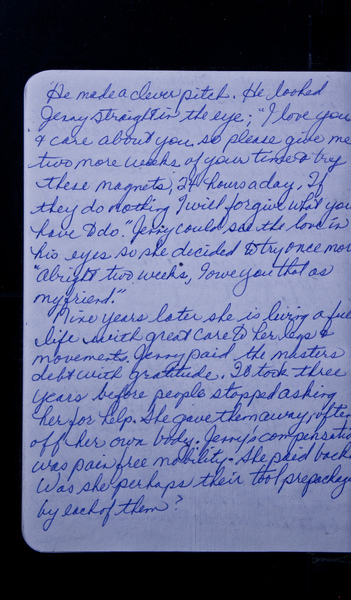 He made a clever pitch. He looked
Jenny straight in the eye; "I love you
& care about you, so please give me
two more weeks of your time to try
these magnets, 24 hours a day. If
they do nothing I will forgive what you
have to do." Jenny could see the love in
his eyes so she decided to try once more
"Alright two weeks, I owe you that as
my friend."
Five years later she is living a full
life with great care to her legs &
movements. Jenny paid the masters
debt with gratitude. It took three
years before people stopped asking
her for help. She gave them away, often
off her own body. Jenny's compensation
was pain free mobility. She paid back.
Was she perhaps their tool prepackage
by each of them?